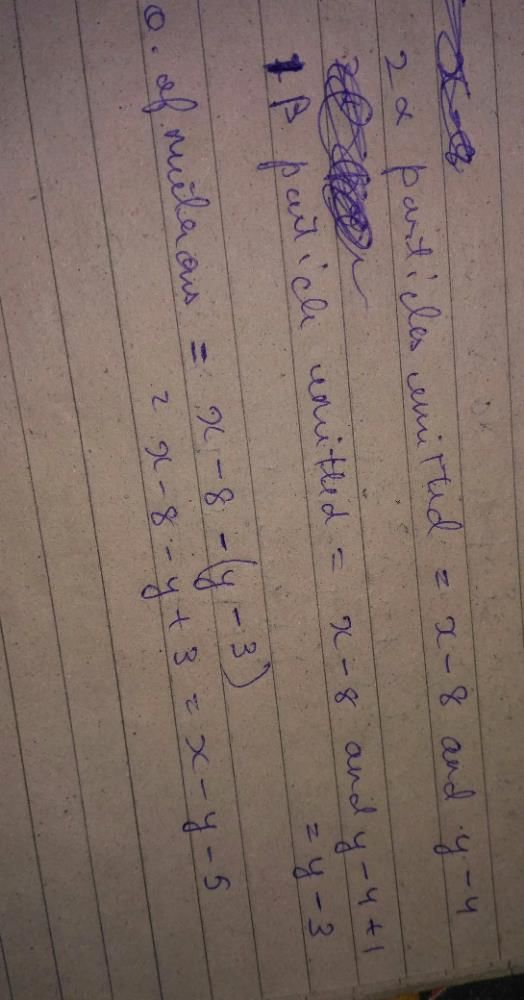 2α particles emitted = x - 8 and y - 4
1 β particle emitted = x - 8 and y - 4 + 1
= y - 3
o. of neutrons = x - 8 - (y - 3)
= x - 8 - y + 3 = x - y - 5